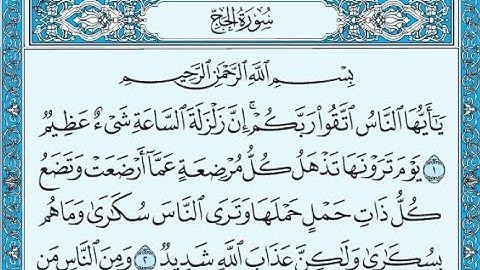 سُورَةُ الحَجِّ
بِسْمِ ٱللَّهِ ٱلرَّحْمَٰنِ ٱلرَّحِيمِ
يَٰٓأَيُّهَا ٱلنَّاسُ ٱتَّقُوا۟ رَبَّكُمْ ۚ إِنَّ زَلْزَلَةَ ٱلسَّاعَةِ شَىْءٌ عَظِيمٌ
١ يَوْمَ تَرَوْنَهَا تَذْهَلُ كُلُّ مُرْضِعَةٍ عَمَّآ أَرْضَعَتْ وَتَضَعُ
كُلُّ ذَاتِ حَمْلٍ حَمْلَهَا وَتَرَى ٱلنَّاسَ سُكَٰرَىٰ وَمَا هُم
بِسُكَٰرَىٰ وَلَٰكِنَّ عَذَابَ ٱللَّهِ شَدِيدٌ ٢ وَمِنَ ٱلنَّاسِ مَن